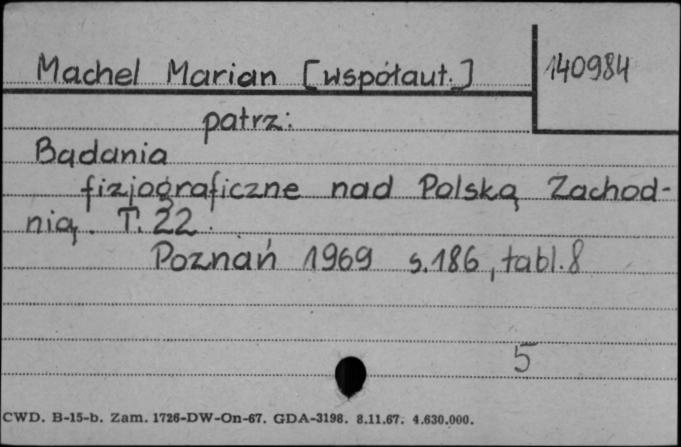 Machel Marian [współaut.]
140984
patrz:
Badania
fizjograficzne nad Polską Zachod-
nią. T. 22.
Poznań 1969 s.186, tabl.8
5
CWD. B-15-b. Zam. 1726-DW-On-67. GDA-3198. 8.11.67. 4.630.000.